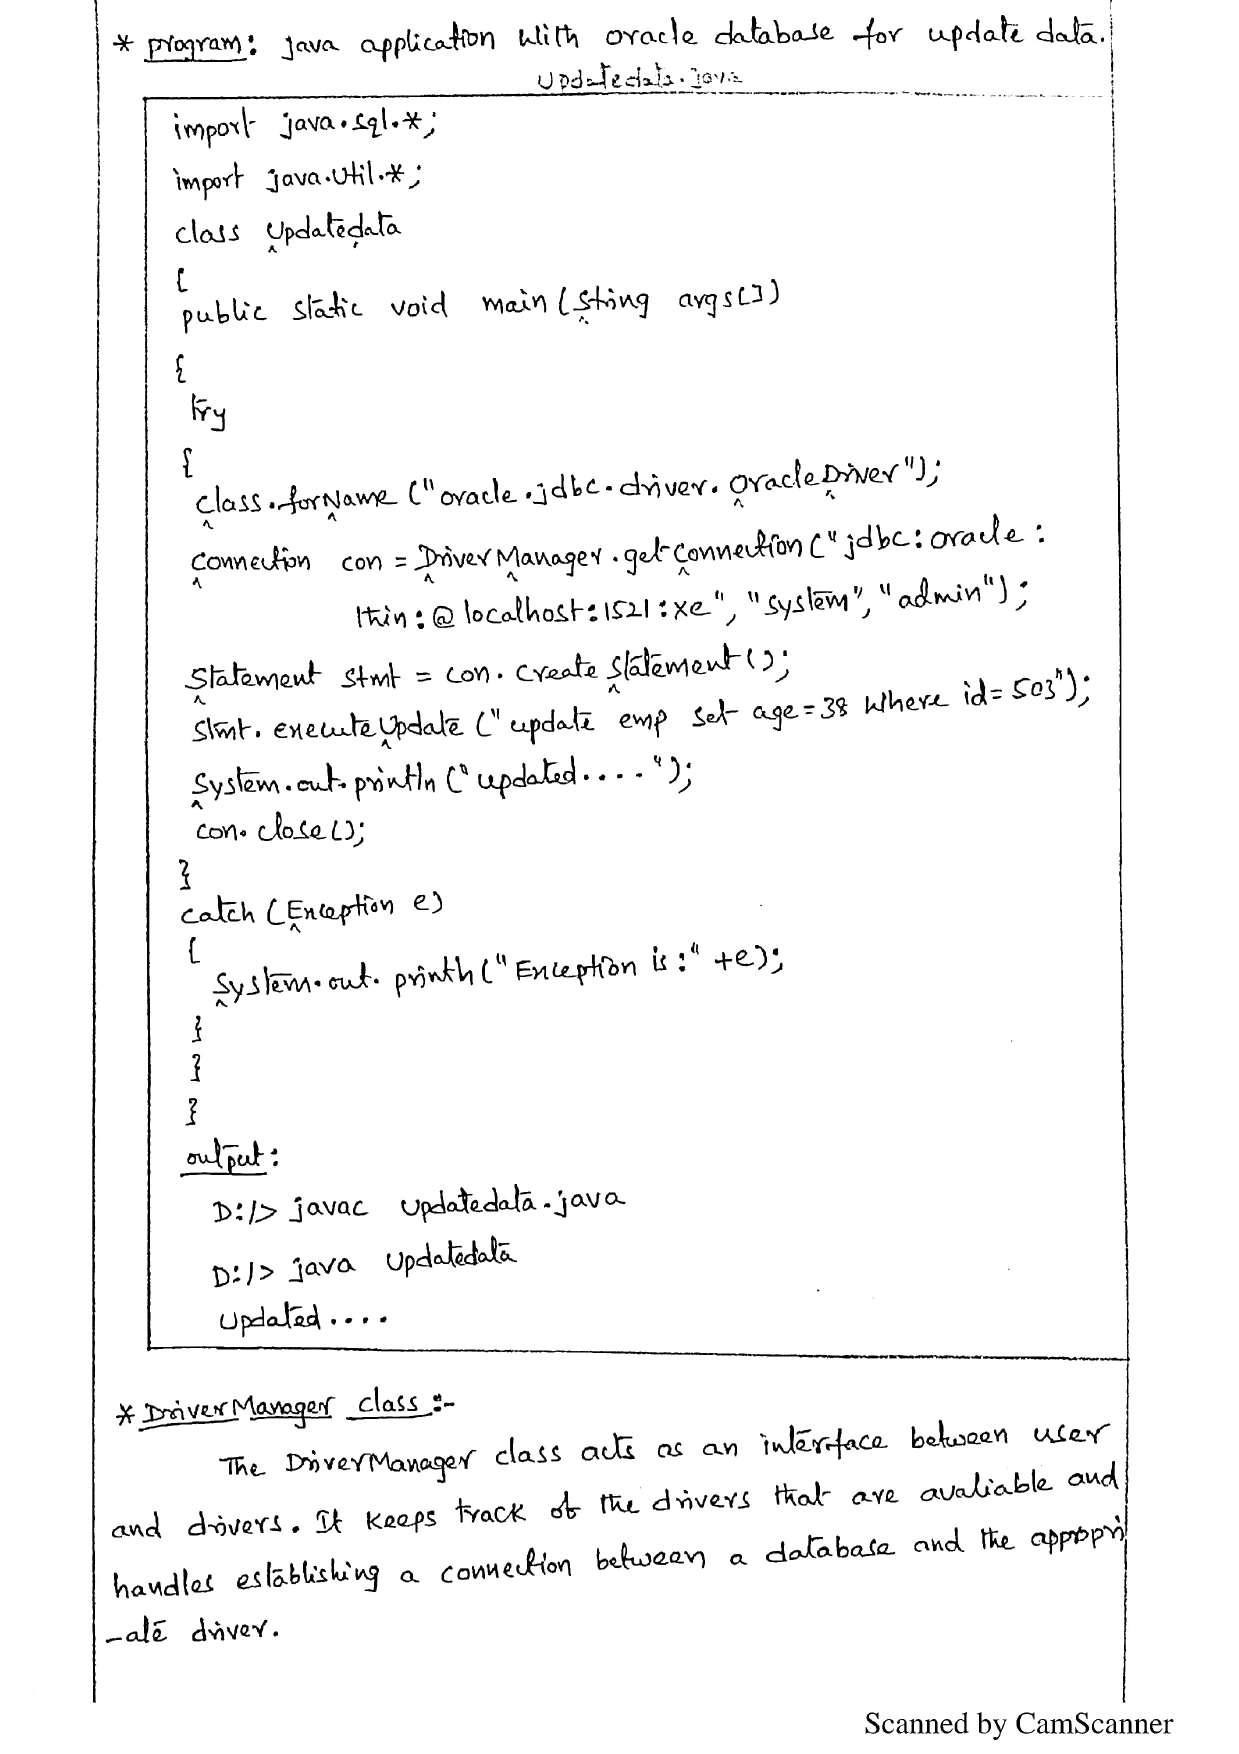 * program: java application with oracle database for update data.
Updatedata.java
import java.sql.*;
import java.util.*;
class Updatedata
{
public static void main(String args[])
{
try
{
Class.forName("oracle.jdbc.driver.OracleDriver");
Connection con = DriverManager.getConnection("jdbc:oracle:
thin:@localhost:1521:xe", "system", "admin");
Statement stmt = con.createStatement();
stmt.executeUpdate("update emp set age=38 where id=503");
System.out.println("updated....");
con.close();
}
catch(Exception e)
{
System.out.println("Exception is:" +e);
}
}
}
output:
D:/> javac Updatedata.java
D:/> java Updatedata
Updated....
* DriverManager class:-
The DriverManager class acts as an interface between user
and drivers. It keeps track of the drivers that are avaliable and
handles establishing a connection between a database and the appropri
-ate driver.
Scanned by CamScanner